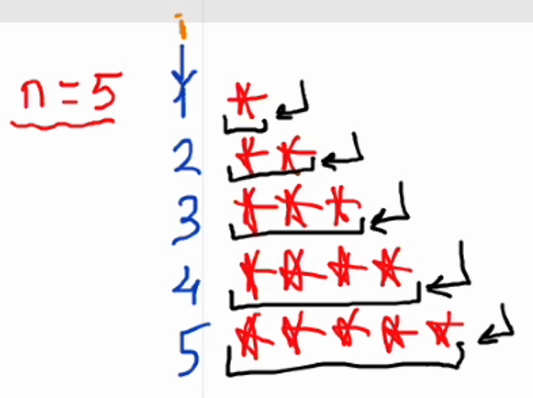 i
n = 5
1 *
2 * *
3 * * *
4 * * * *
5 * * * * *